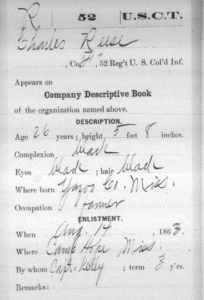 R 52 U.S.C.T.
Charles Reese
, Co. F, 52 Reg't U. S. Col'd Inf.
Appears on
Company Descriptive Book
of the organization named above.
DESCRIPTION.
Age 26 years; height 5 feet 8 inches.
Complexion Black
Eyes Black; hair Black
Where born Yazoo Co. Miss.
Occupation Farmer
ENLISTMENT.
When Aug. 14, 1863.
Where Camp Miss.
By whom Capt. Kelly; term 3 y'rs.
Remarks: